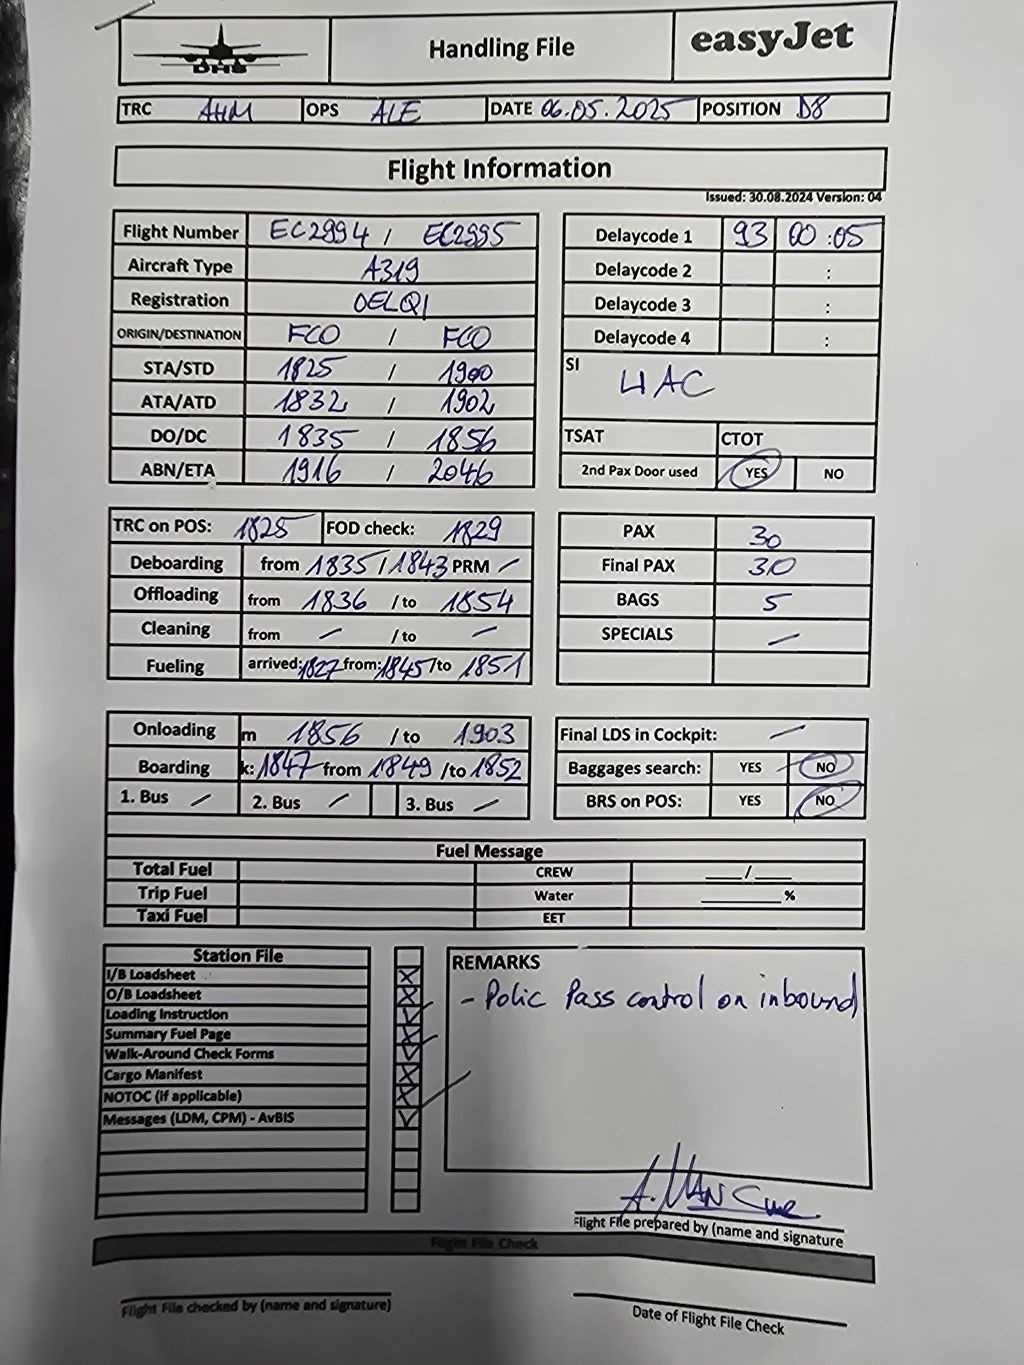 DHS Handling File easyJet
TRC AHM OPS ALE DATE 06.05.2025 POSITION D8
Flight Information
Issued: 30.08.2024 Version: 04
Flight Number EC2994 / EC2995
Aircraft Type A319
Registration OELQI
ORIGIN/DESTINATION FCO / FCO
STA/STD 1825 / 1900
ATA/ATD 1832 / 1902
DO/DC 1835 / 1856
ABN/ETA 1916 / 2046
Delaycode 1 93 00 :05
Delaycode 2 :
Delaycode 3 :
Delaycode 4 :
SI
4AC
TSAT CTOT
2nd Pax Door used YES NO
TRC on POS: 1825 FOD check: 1829
Deboarding from 1835 / 1843 PRM –
Offloading from 1836 / to 1854
Cleaning from – / to –
Fueling arrived: 1827 from: 1845 /to 1851
PAX 30
Final PAX 30
BAGS 5
SPECIALS –
Onloading m 1856 / to 1903
Boarding k: 1847 from 1849 /to 1852
1. Bus – 2. Bus – 3. Bus –
Final LDS in Cockpit: –
Baggages search: YES NO
BRS on POS: YES NO
Fuel Message
Total Fuel CREW ___/___
Trip Fuel Water ______%
Taxi Fuel EET
Station File
I/B Loadsheet
O/B Loadsheet
Loading Instruction
Summary Fuel Page
Walk-Around Check Forms
Cargo Manifest
NOTOC (if applicable)
Messages (LDM, CPM) - AvBIS
REMARKS
- Polic Pass control on inbound
Flight File prepared by (name and signature
Flight File Check
Flight File checked by (name and signature)
Date of Flight File Check